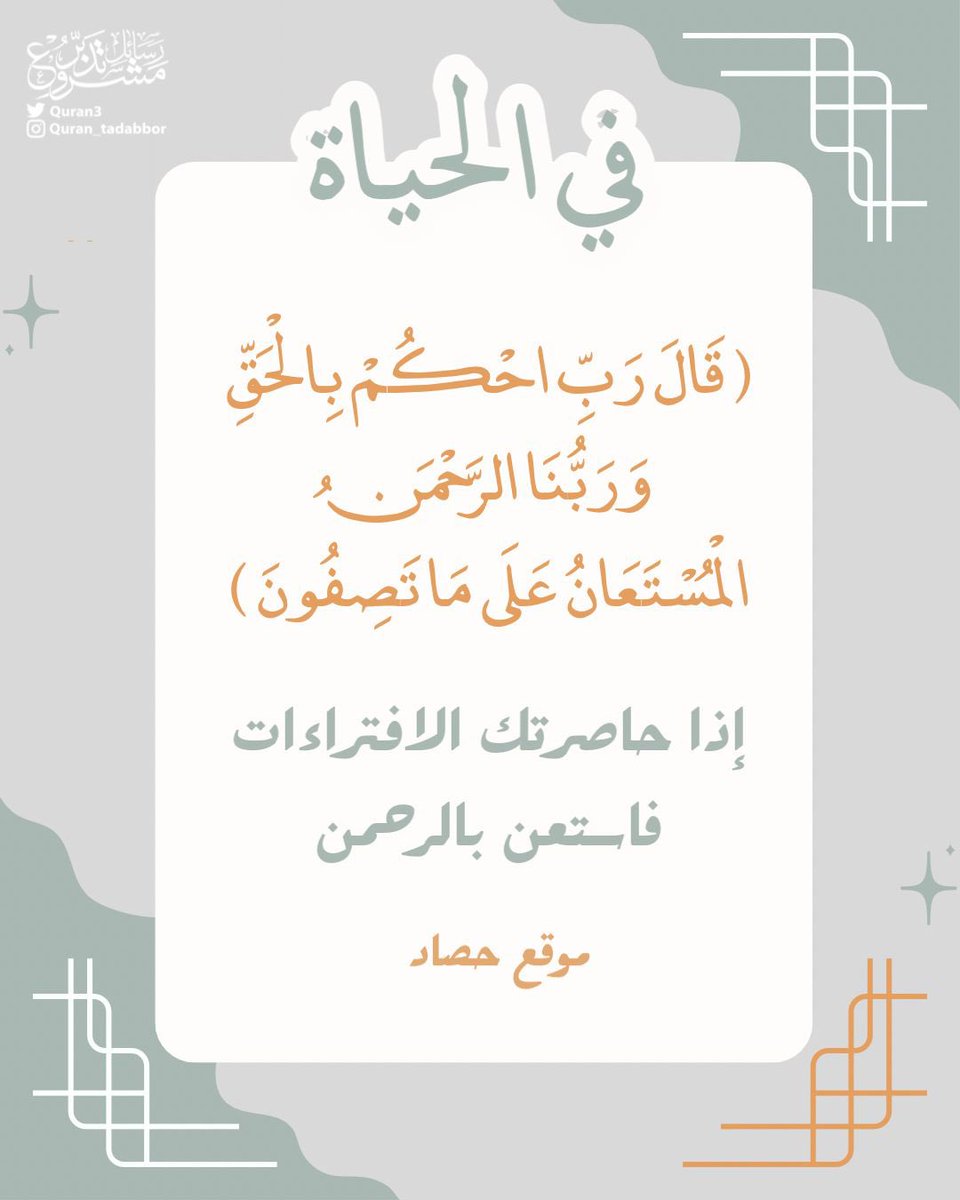 مشروع رسائل تدبر
Quran3
Quran_tadabbor
في الحياة
(قَالَ رَبِّ احْكُمْ بِالْحَقِّ
وَرَبُّنَا الرَّحْمَنُ
الْمُسْتَعَانُ عَلَى مَا تَصِفُونَ)
إذا حاصرتك الافتراءات
فاستعن بالرحمن
موقع حصاد